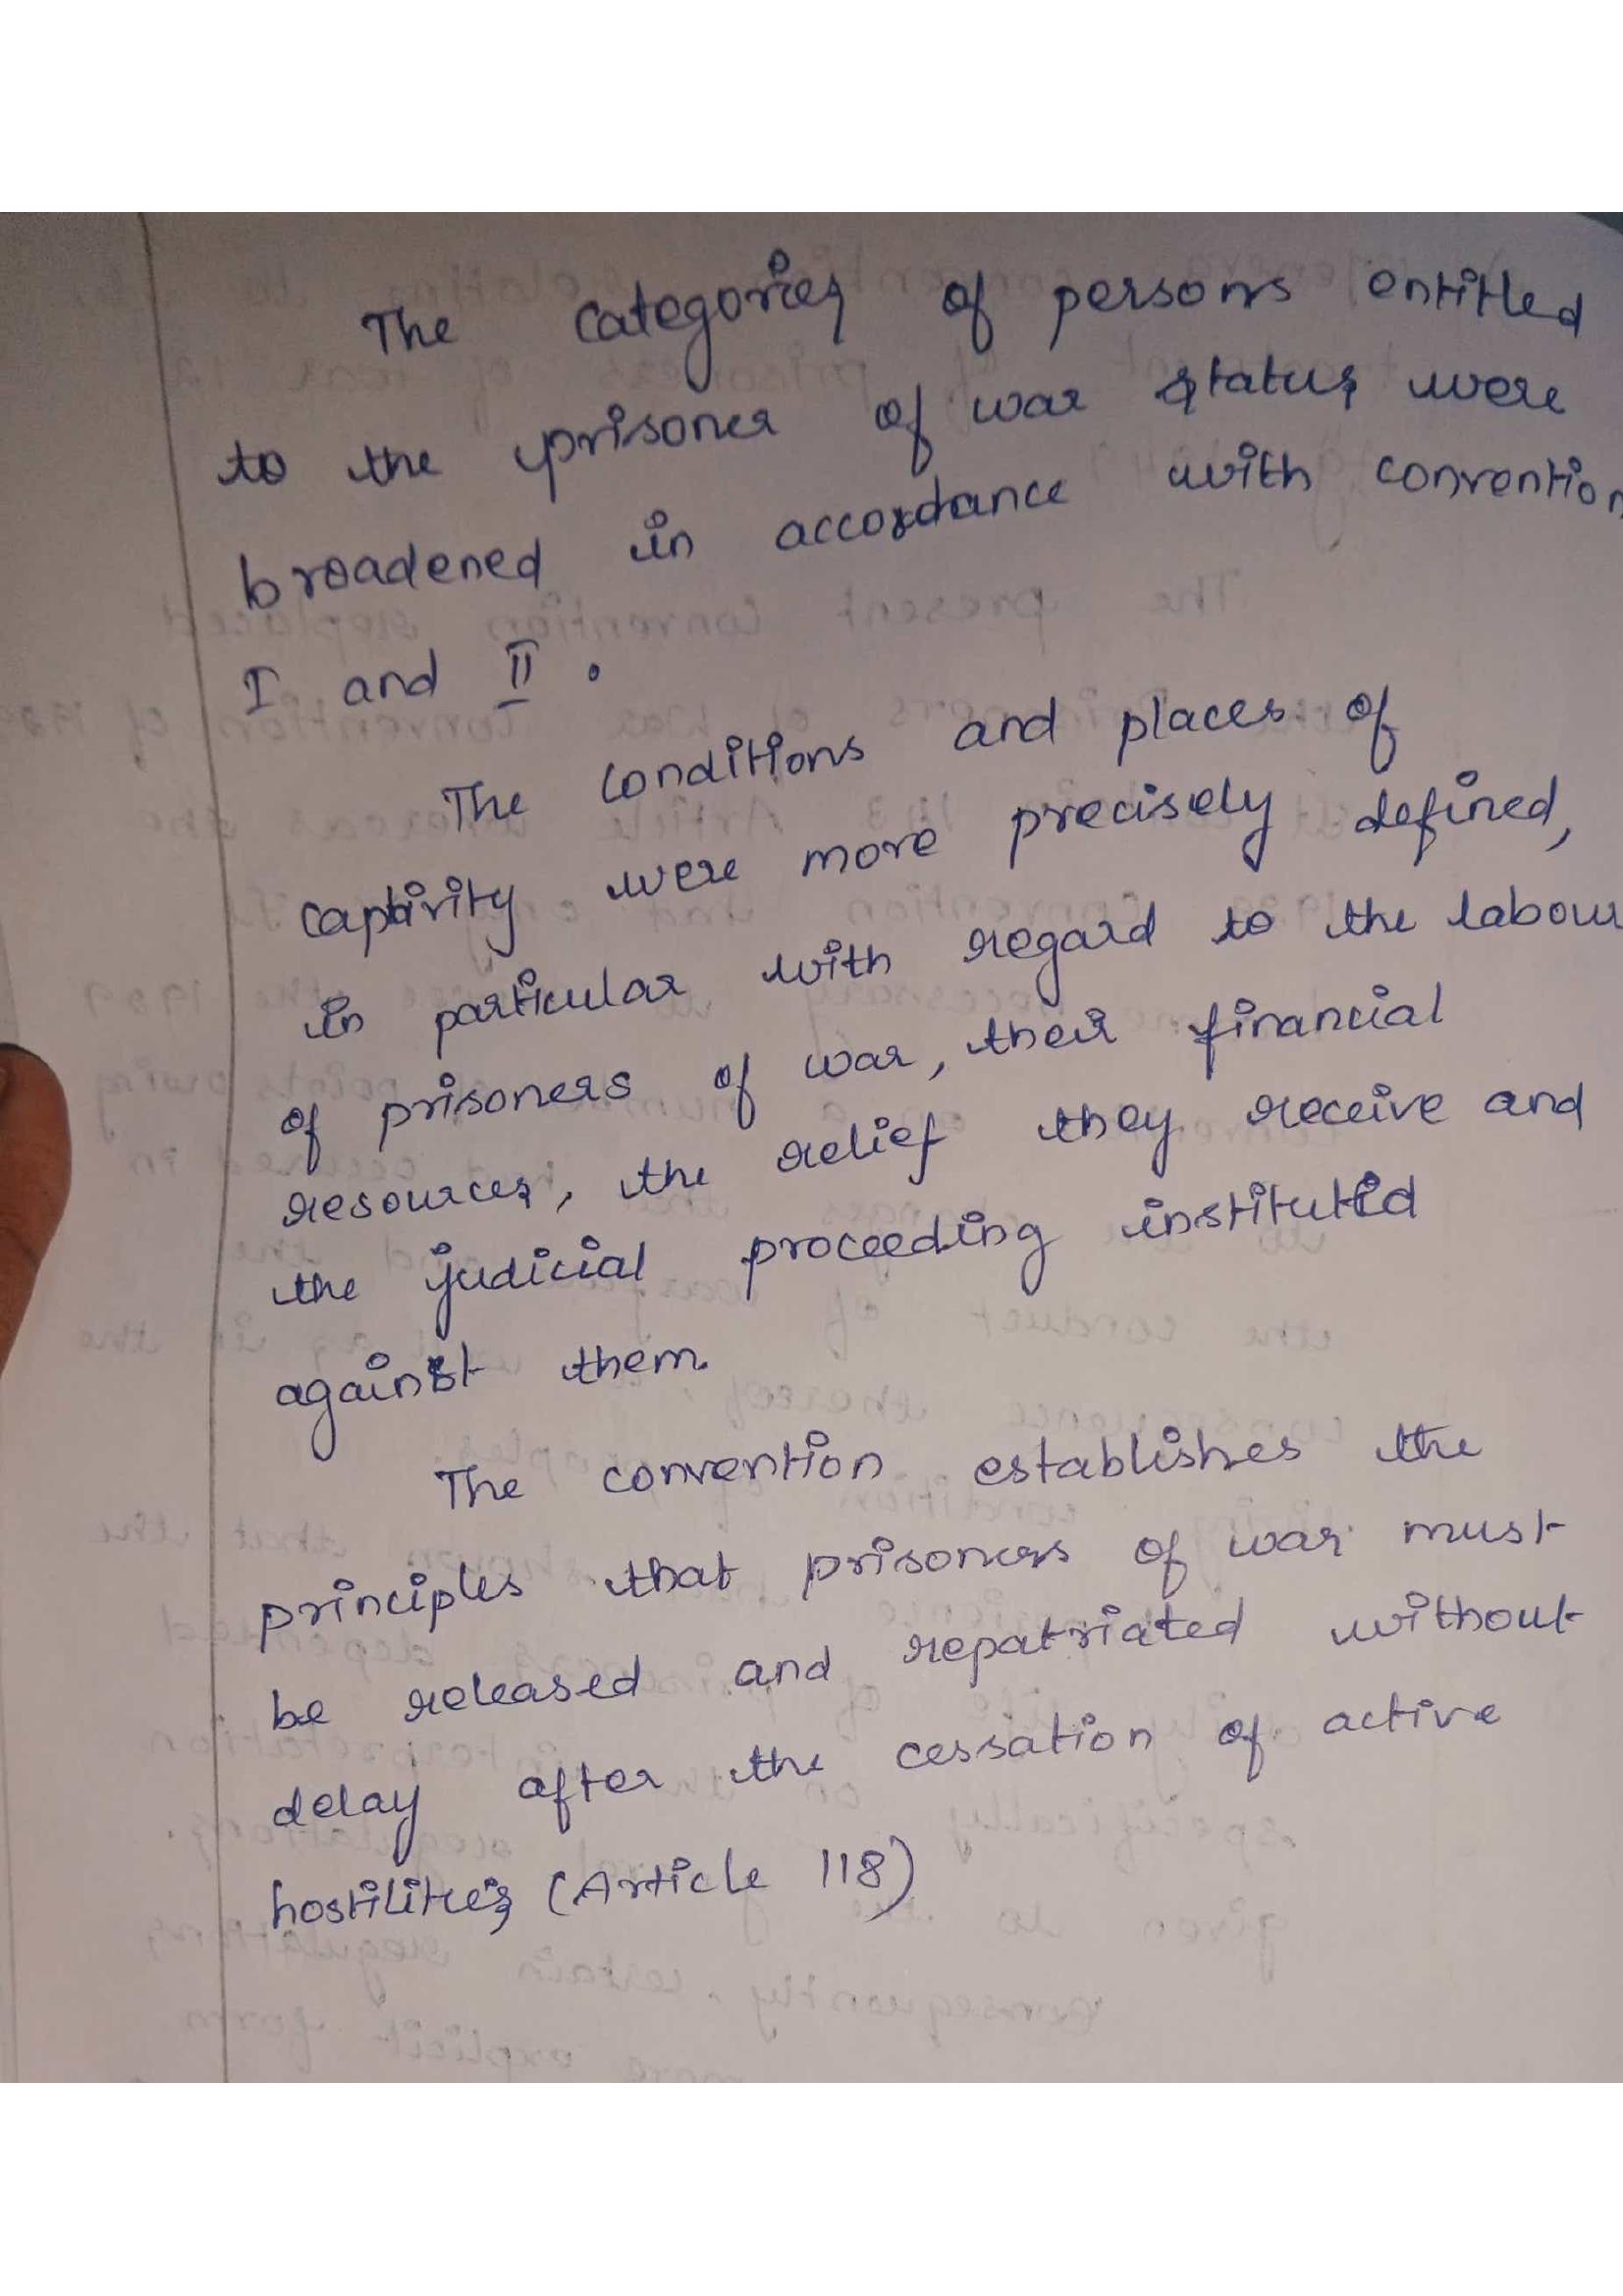 The categories of persons entitled
to the prisoner of war status were
broadened in accordance with convention
I and II.
The conditions and places of
captivity were more precisely defined,
in particular with regard to the labour
of prisoners of war, their financial
resources, the relief they receive and
the judicial proceeding instituted
against them.
The convention establishes the
principles that prisoners of war must
be released and repatriated without
delay after the cessation of active
hostilities (Article 118)